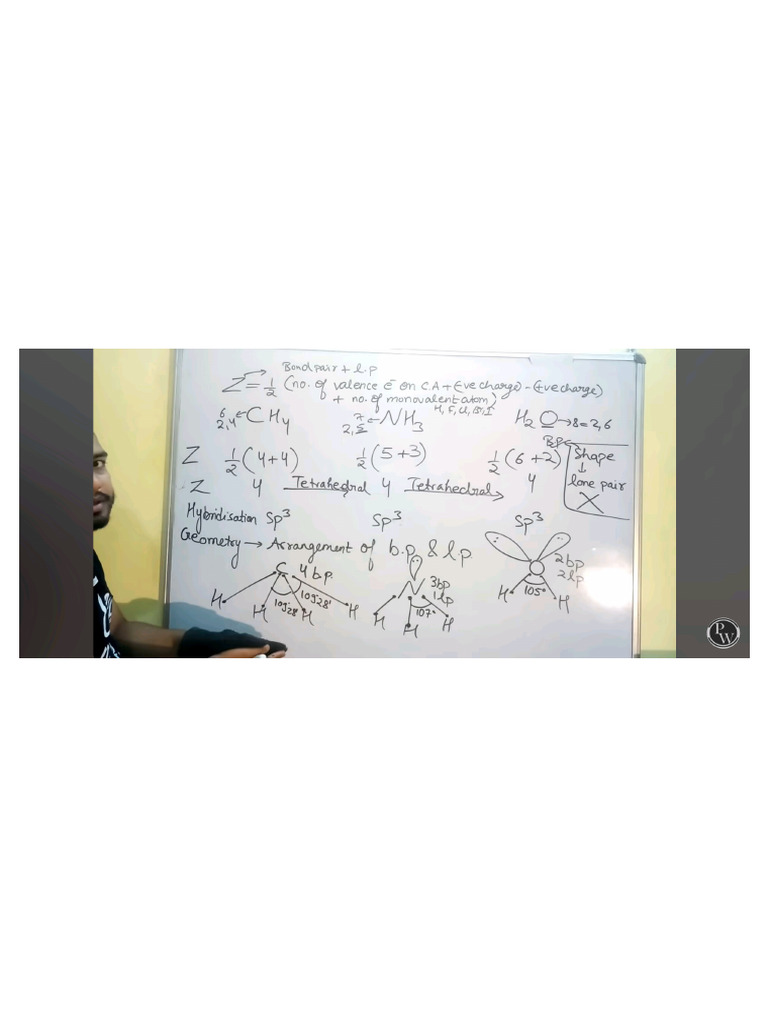 Bond pair + l.p
Z = 1/2 (no. of valence e⁻ on C.A + (-ve charge) - (+ve charge)
+ no. of monovalent atom)
H, F, Cl, Br, I
6 2,4 ← CH4 7 2,5 ← NH3 H2O → 8 = 2,6
Z 1/2 (4+4) 1/2 (5+3) 1/2 (6+2)
B.P
Shape
↓
lone pair
X
Z 4 Tetrahedral 4 Tetrahedral → 4
Hybridisation Sp3 Sp3 Sp3
Geometry → Arrangement of b.p & l.p.
C 4 b.p.
H H H H
109°28' 109°28'
N 3bp
1lp
107°
H H H
O 2bp
2lp
105°
H H
PW